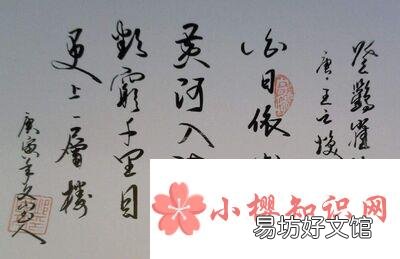 登鸛雀
唐·王之渙
白日依
黃河入
欲窮千里目
更上一層樓
庚寅年
小樱知识网
易坊好文馆